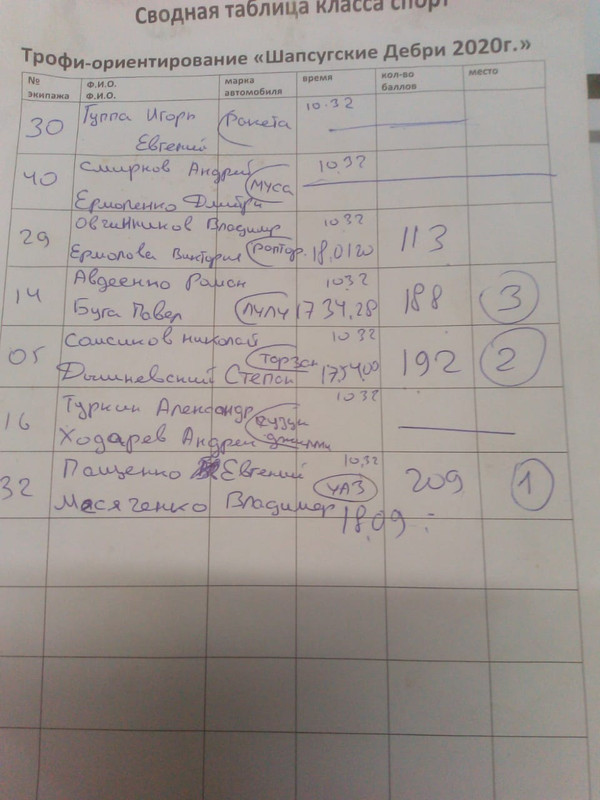 Сводная таблица класса спорт
Трофи-ориентирование «Шапсугские Дебри 2020г.»
№ экипажа Ф.И.О. Ф.И.О. марка автомобиля время кол-во баллов место
30 Гуппа Игорь Ракета 10.32
Евгений
40 Смирнов Андрей Муса 10.32
Ермоленко Дмитри
29 Овчинников Владимир 10 32
Ермолова Виктория Раптор 18,01 20 113
14 Авдеенко Роман 10 32
Буга Павел Лулу 17 34,28 188 3
05 Николай 10 32
Степан Тарзан 17,54,00 192 2
16 Туркин Александр 10 32
Ходарев Андрей
32 Пащенко Евгений 10,32
УАЗ 209 1
Масяченко Владимир 18.09 :